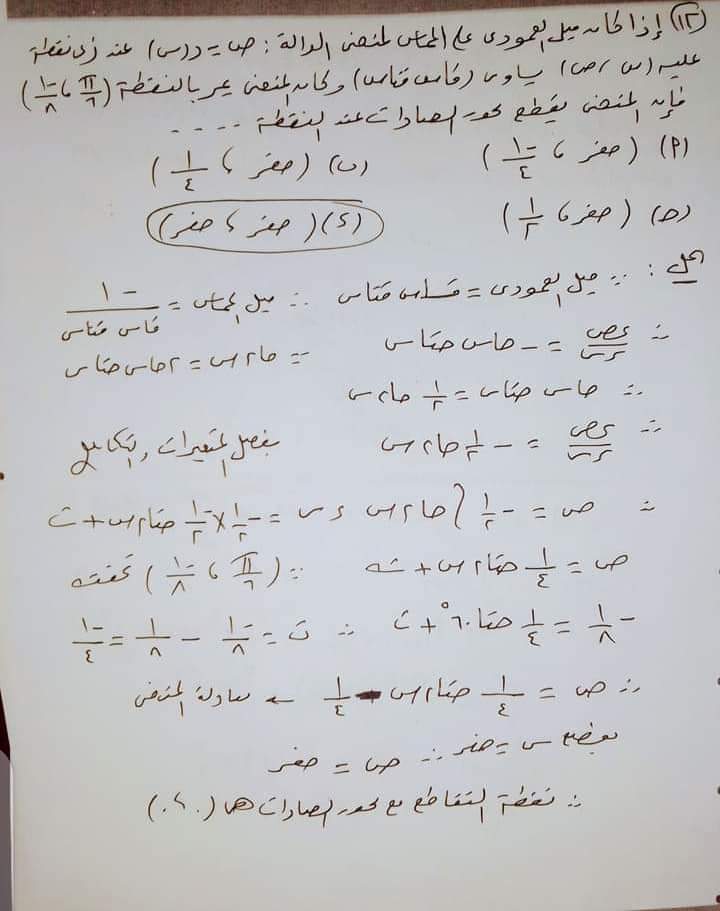 (١٢) إذا كان ميل العمودى على المماس لمنحنى الدالة : ص = د(س) عند أى نقطة
عليه (س ، ص) يساوى (قاس قتاس) وكان المنحنى يمر بالنقطة (π/٦ ، -١/٨)
فإن المنحنى يقطع محور الصادات عند النقطة ....
(P) (صفر ، -١/٤) (ب) (صفر ، ١/٤)
(ح) (صفر ، ١/٢) (د) (صفر ، صفر)
الحل : ∵ ميل العمودى = قاس قتاس ∴ ميل المماس = -١/(قاس قتاس)
∴ ءص/ءس = -حاس حتاس ∵ حا٢س = ٢حاس حتاس
∴ حاس حتاس = ١/٢ حا٢س
∴ ءص/ءس = -١/٢ حا٢س بفصل المتغيرات والتكامل
∴ ص = -١/٢ ∫ حا٢س ءس = -١/٢ × -١/٢ حتا٢س + ث
ص = ١/٤ حتا٢س + ث ∵ (π/٦ ، -١/٨) تحققه
-١/٨ = ١/٤ حتا٦٠° + ث ∴ ث = -١/٨ - ١/٨ = -١/٤
∴ ص = ١/٤ حتا٢س - ١/٤ ← معادلة المنحنى
بوضع س = صفر ∴ ص = صفر
∴ نقطة التقاطع مع محور الصادات هى (٠،٠)